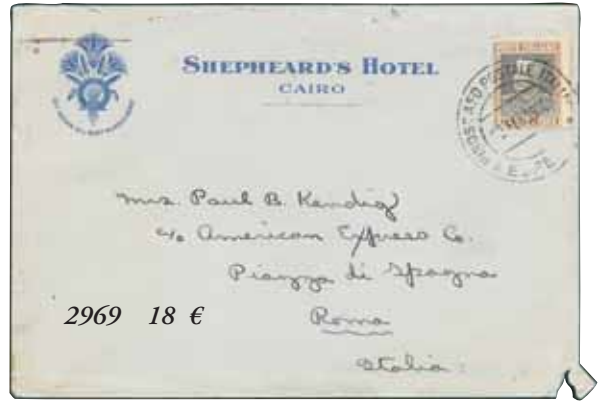 SHEPHEARD'S HOTEL
CAIRO
Mrs. Paul B. Kendig
c/o American Express Co.
Piazza di Spagna
Roma
Italia
2969 18 €